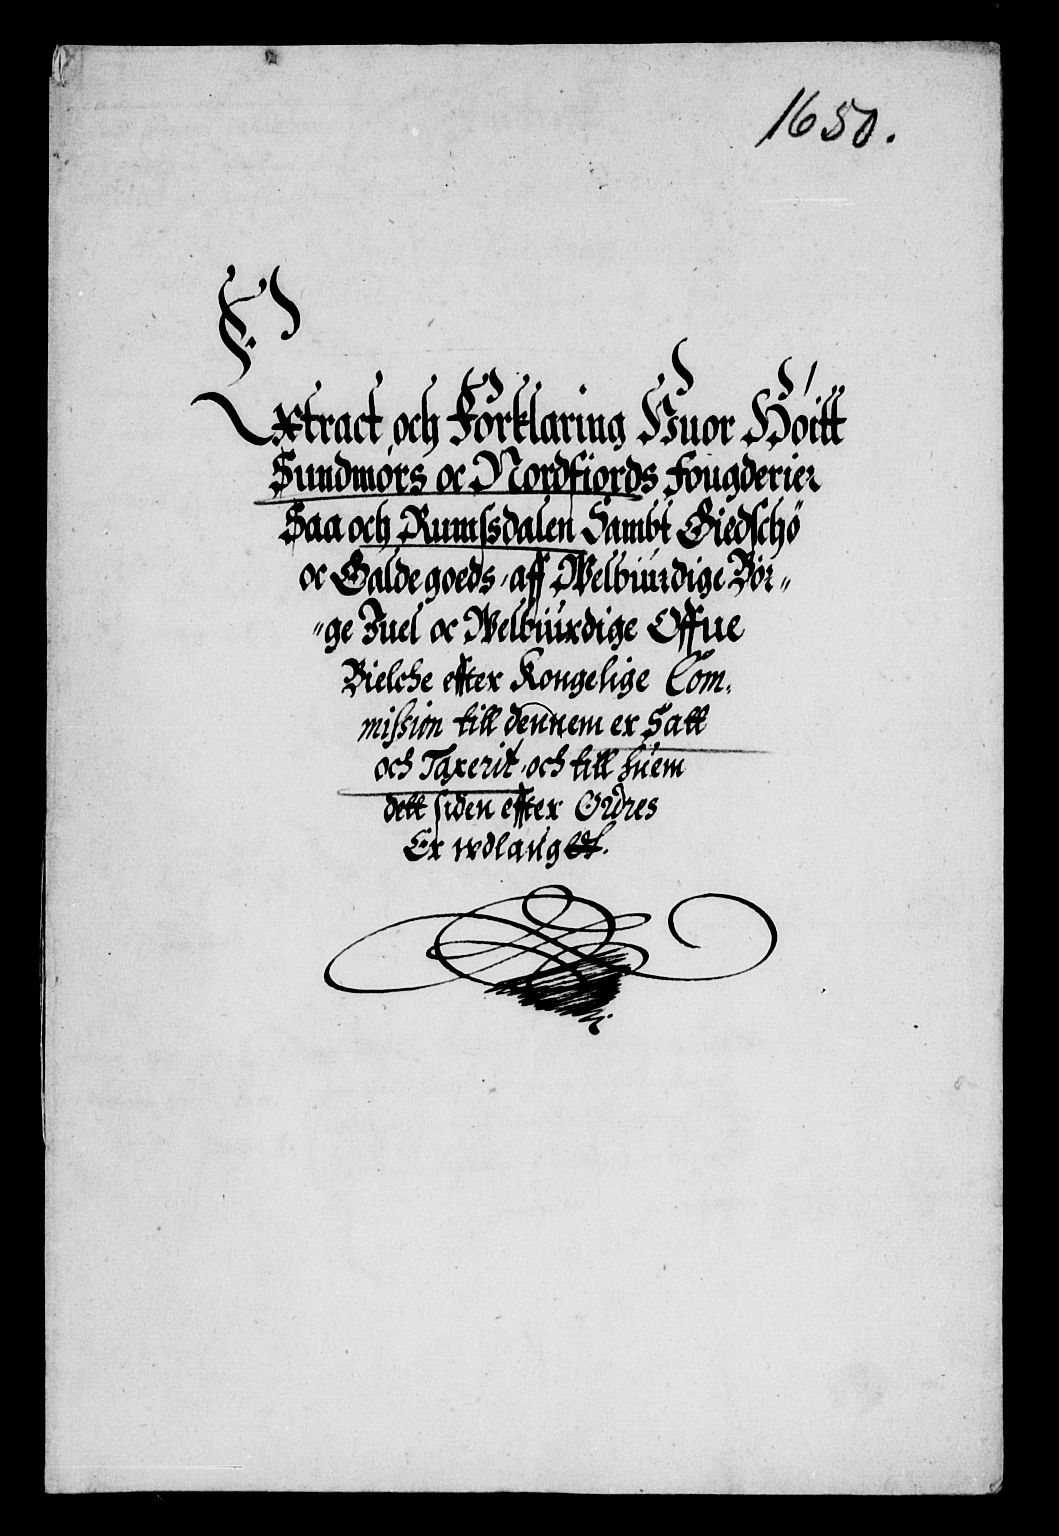 1650.
Extract och Forklaring Huor Höitt
Sundmørs oc Nordfiords fougderier
Saa och Rumssdalen Sambt Giedschö
oc Galde goeds, aff Welbiurdige Bör-
-ge Juel oc Welbiurdige Offue
Bielche effter Kongelige Com,
mission till dennem er Satt
och Taxerit, och till huem
dett siden effter Ordres
Er wdlaugt.